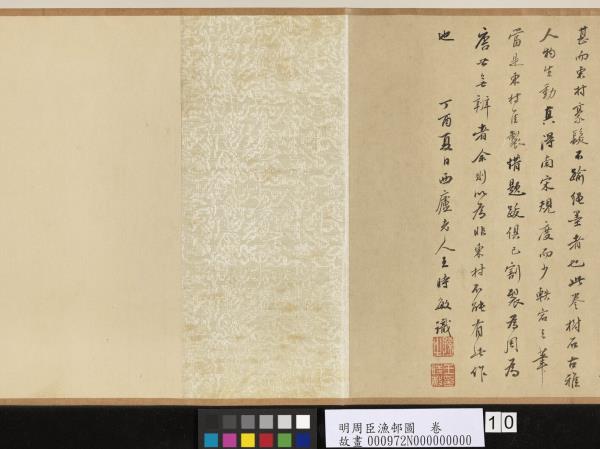 甚而東村豪縱不踰繩墨者也此卷樹石古雅
人物生動真得南宋規度而少軼宕之筆
當是東村佳製惜題跋俱已割裂為周為
唐世無辨者余則以為非東村不能有此作
也
丁酉夏日西廬老人王時敏識
10
明周臣漁邨圖 卷
故畫 000972N000000000